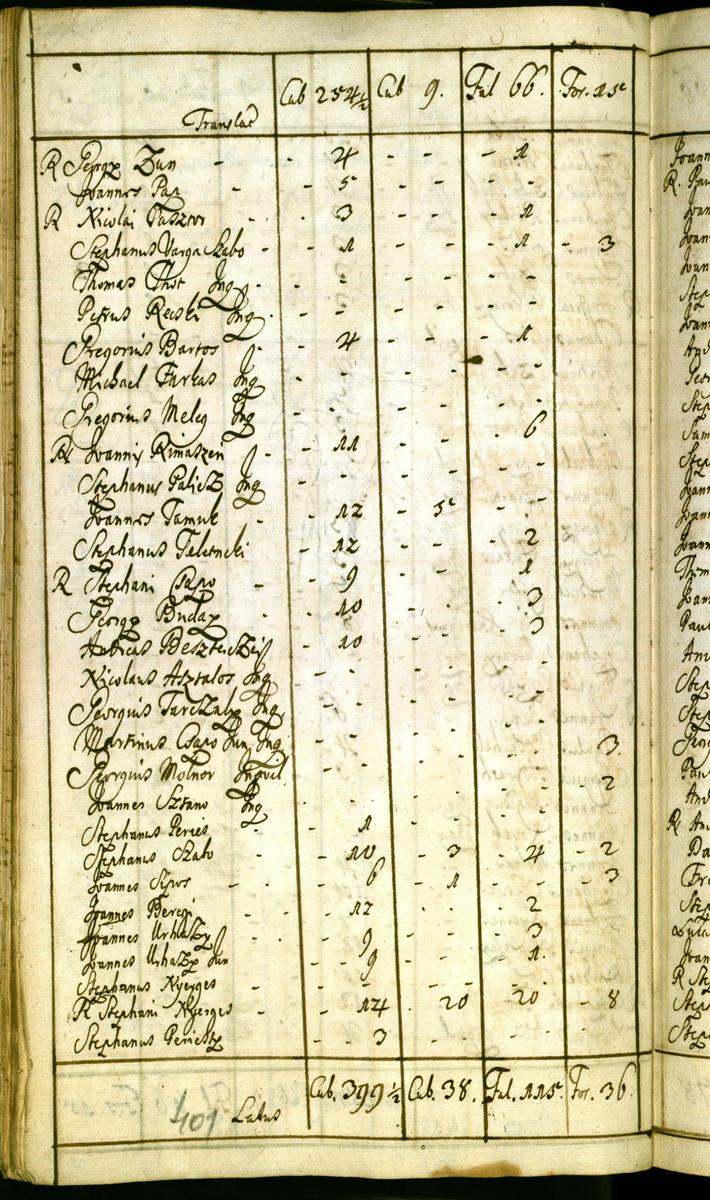 Cub 254½ Cub 9. Fal 66. For. 15
Translat
R Georgy Zun - - 4 - - - 1
Joannes Pap - - 5 - - - -
R Nicolai Pasztor - - 3 - - - 1
Stephanus Varga Szabo - - 1 - - - 1 - 3
Thomas Thot Inq - - - - - -
Petrus Recski Inq - - - - - -
Gregorius Bartos - - 4 - - - 1
Michael Farkas Inq - - - - - -
Gregorius Meleg Inq - - - - - 6
R Joannis Rimaszeri - 11 - - - -
Stephanus Palicz Inq - - - - - -
Joannes Tamuk - - 12 - 5 - -
Stephanus Teletncki - 12 - - - 2
R Stephani Papo - - 9 - - - 1
Georgy Buday - - 10 - - - 3
Andreas Beszterczei - 10 - - - 3
Nicolaus Asztalos Inq - - - - - -
Georgius Tarczaly Inq - - - - - -
Martinus Csapo Jun. Inq - - - - - - 3.
Georgius Molnor Inquil - - - - - - 2
Joannes Sztano Inq - - - - - -
Stephanus Peries - - 1 - - - -
Stephanus Szabo - - 10 - 3 - 4 - 2
Joannes Sipos - - 6 - 1 - - - 3
Joannes Beregi - - 12 - - - 2
Joannes Urhazy - - 9 - - - 3
Joannes Urhazy Jun - 9 - - - 1.
Stephanus Nyerges - - - - - -
R Stephani Nyerges - - 14 - 20 - 20 - 8
Stephanus Periesty - 3 - - - -
401 Latus Cub. 399½ Cub. 38. Fal. 115. For. 36